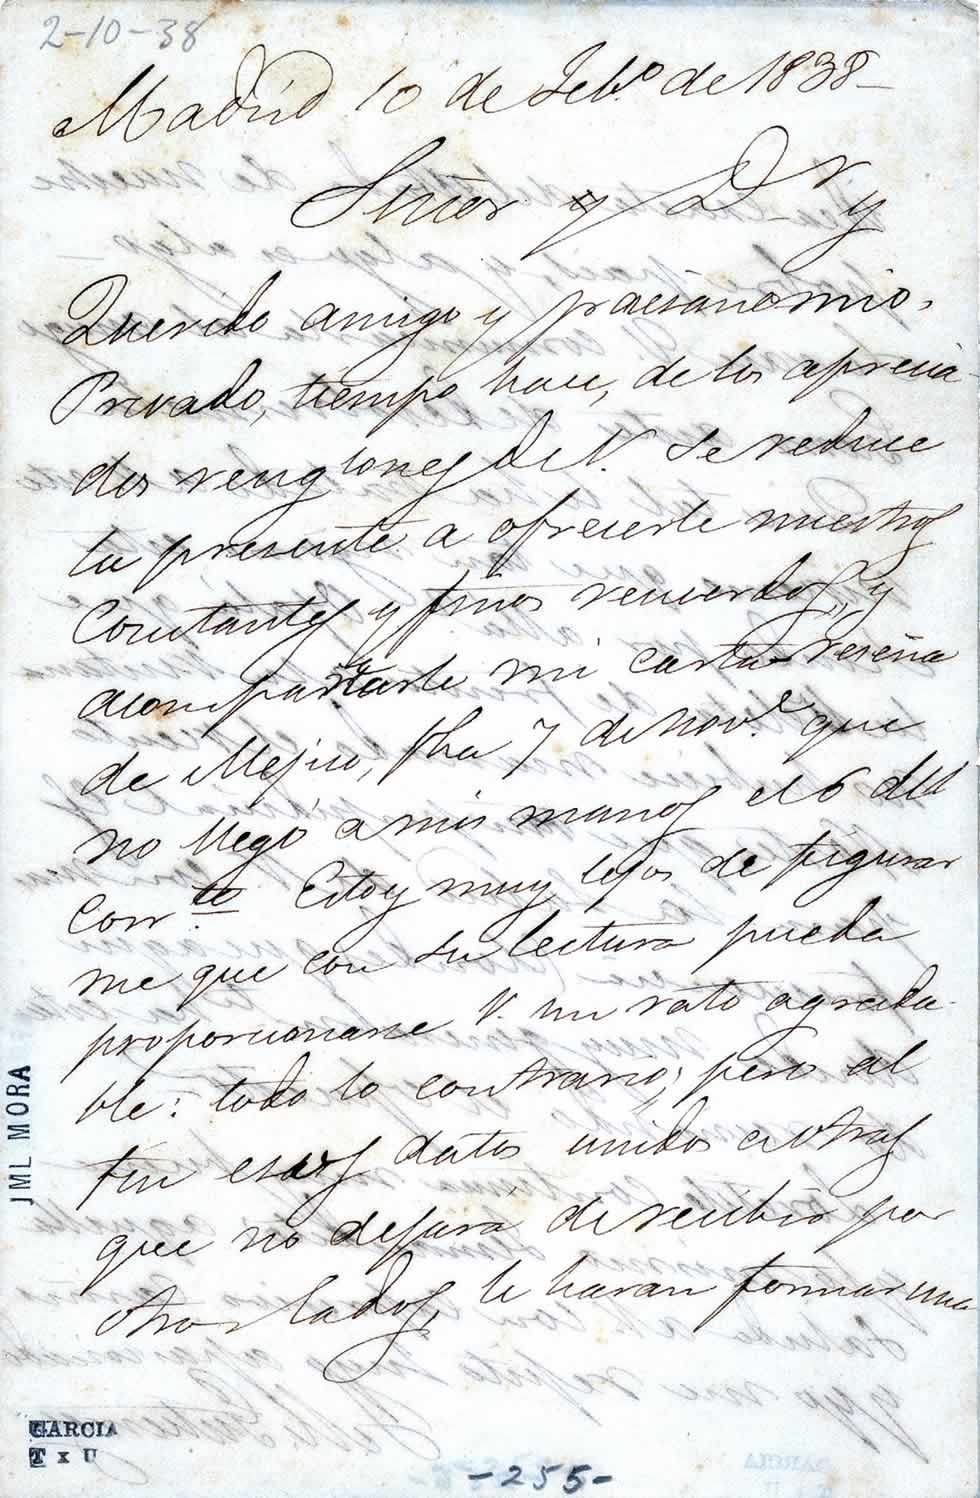 2-10-38
Madrid 10 de Feb.º de 1838-
Señor y Dr y
Querido amigo y paesano mio.
Privado, tiempo hace, de los aprecia-
dos renglones de V. se reduce
la presente a ofrecerle nuestros
constantes y finos recuerdos, y
acompañarle mi carta-reseña
de Mejico, fha 7 de Nov.e que
no llegó a mis manos el 6 del
corr.te Estoy muy lejos de figurar
me que con su lectura pueda
proporcionarse V. un rato agrada-
ble: todo lo contrario; pero al
fin esos datos unidos a otros
que no dejará de recibir por
otros lados, le haran formar una
JML MORA
GARCIA
T x U
-255-